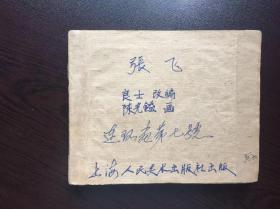 張飞
良士 改编
陈光镒 画
连环画第七號
上海人民美术出版社出版